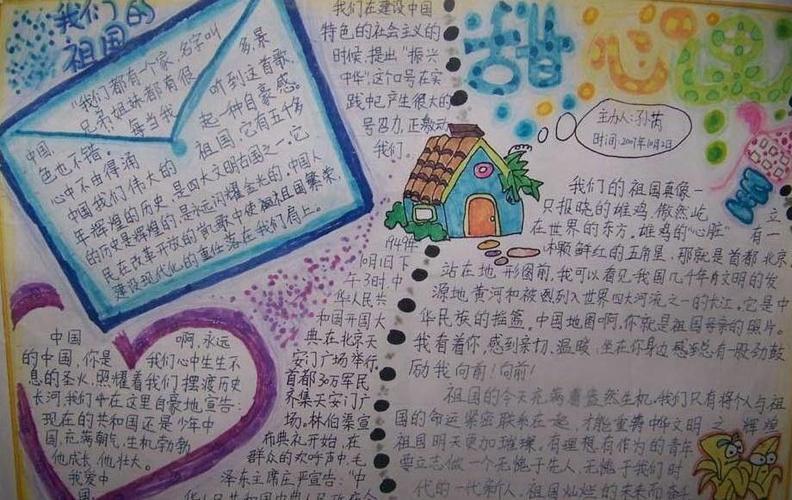 我们的
祖国
"我们都有一个家,名字叫
中国,兄弟姐妹都有很多,景
色也不错。"每当我听到这首歌
心中不由得涌起一种自豪感。
中国我们伟大的祖国,它有五千多
年辉煌的历史,是四大文明古国之一,它
的历史是辉煌的是永远闪耀金光的,中国人
民在改革开放的凯歌中使祖国繁荣,
建设现代化的重任落在我们肩上。
中国啊,永远
的中国,你是我们心中生生不
息的圣火,照耀着我们摆渡历史
长河我们在这里自豪地宣告:
现在的共和国还是少年中
国,充满朝气,生机勃勃
他成长,他壮大。
我爱中
国
我们在建设中国
特色的社会主义的
时候,提出"振兴
中华"这个口号在实
践中已产生很大的
号召力,正激动
我们。
1949年
10月1日下
午3时,中
华人民共
和国开国大
典在北京天
安门广场举行
首都30万军民
齐集天安门广
场。林伯渠宣
布典礼开始,在
群众的欢呼声中,毛
泽东主席庄严宣告:"中
华人民共和国中央人民政府今
甜心
主办人:孙
时间:2007年10月2日
我们的祖国真像一
只报晓的雄鸡,傲然屹立
在世界的东方,雄鸡的"心脏"有一
颗鲜红的五角星,那就是首都北京,
站在地形图前,我可以看见我国几千年有文明的发
源地,黄河和被列入世界四大河流之一的大江。它是中
华民族的摇篮。中国地图啊,你就是祖国母亲的照片。
我看着你,感到亲切,温暖,坐在你身边感到总有一股劲鼓
励我向前!向前!
祖国的今天充满着盎然生机,我们只有将个人与祖
国的命运紧密联系在一起,才能重铸中华文明之辉煌
祖国明天更加璀璨。有理想有作为的青年
要立志做一个无愧于先人,无愧于我们时
代的一代新人,祖国灿烂的未来